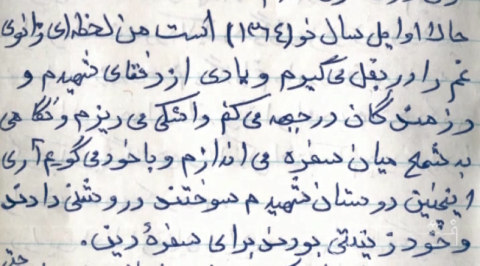 حال اوایل سال نو (۱۳۶۴) است من لحظه‌ای زانوی
غم را در بغل می‌گیرم و یادی از رفقای شهیدم و
رزمندگان در جبهه می‌کنم و اشکی می‌ریزم و نگاهی
به شمع میان سفره می‌اندازم و با خود می‌گویم آری
اینچنین دوستان شهیدم سوختند و روشنی دادند
و خود زینتی بودند برای سفرهٔ دین.